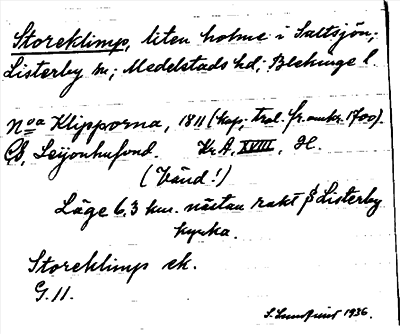 Storeklimp, liten holme i Saltsjön;
Listerby sn; Medelstads hd; Blekinge l
Noa Klipporna, 1811 (kop; trol. fr. omkr. 1700).
Leijonhufvud. Kr. A, XVIII, H.
(Vänd!)
Läge 6,3 km. nästan rakt S Listerby
kyrka.
Storeklimp ek.
G. 11.
1936.